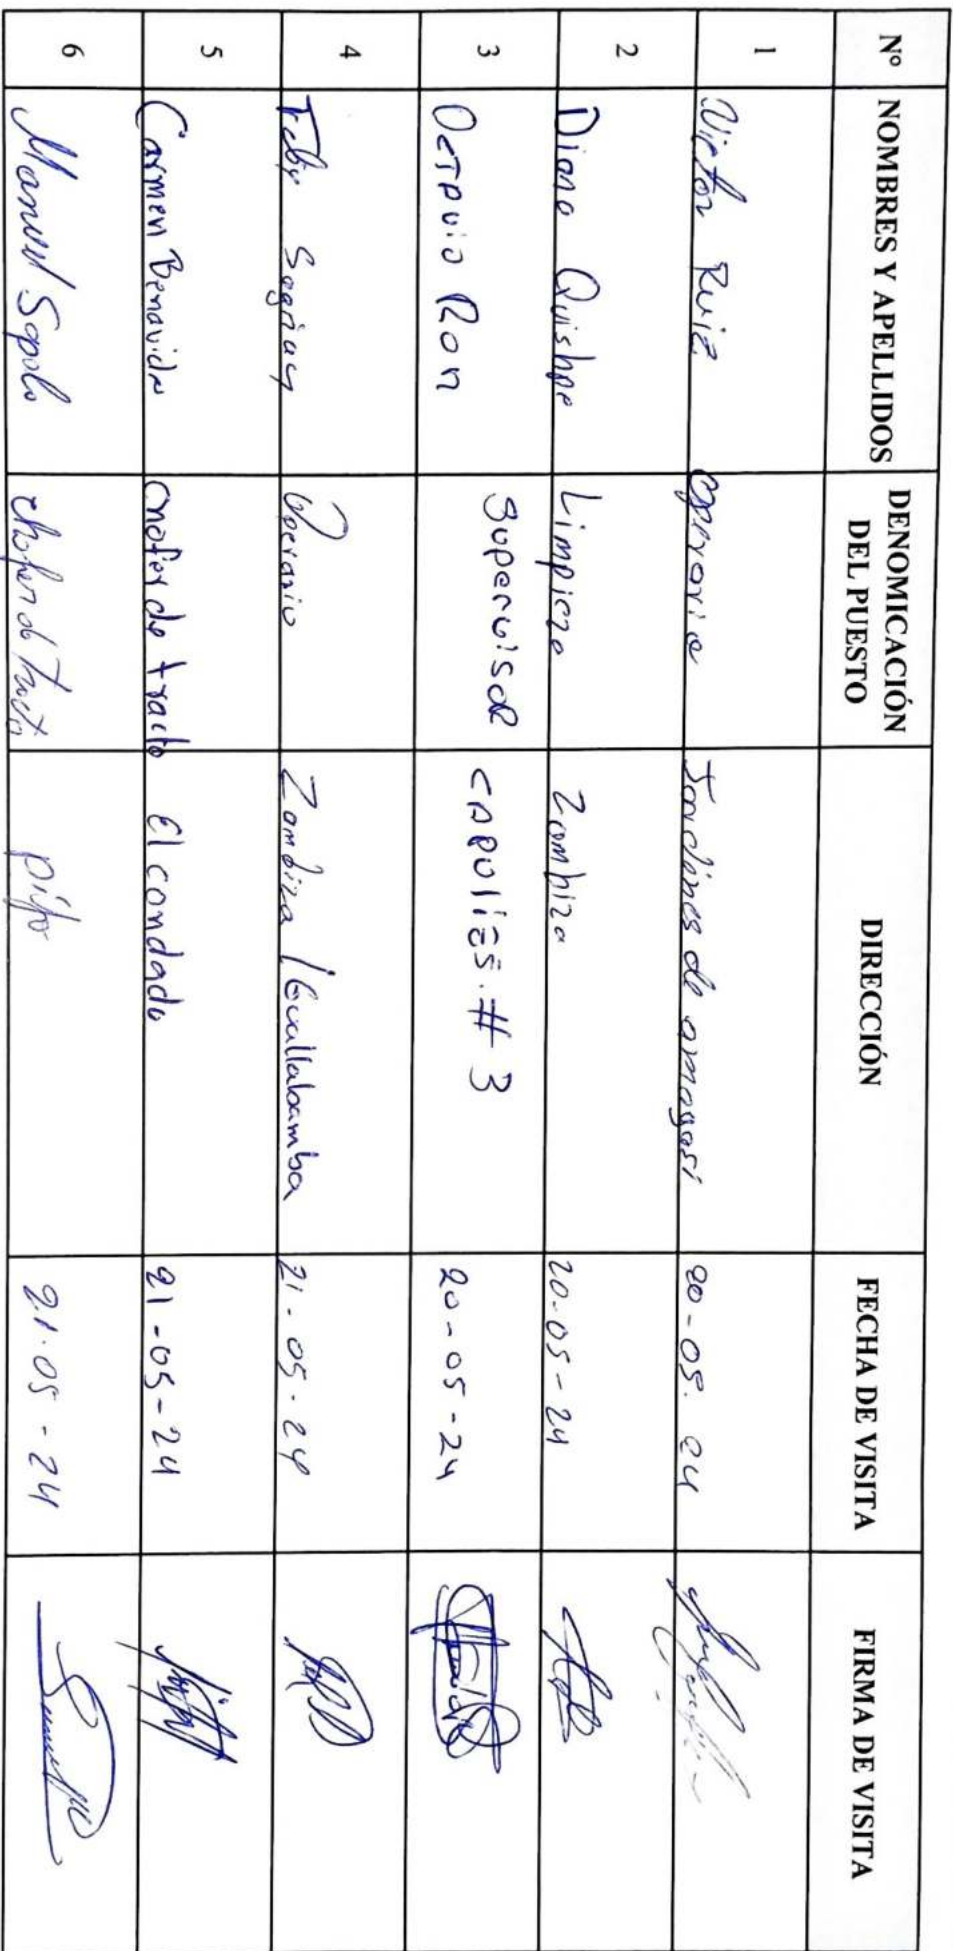 Nº NOMBRES Y APELLIDOS DENOMICACIÓN DEL PUESTO DIRECCIÓN FECHA DE VISITA FIRMA DE VISITA
1 Victor Ruiz operario Jardines de amagasi 20-05.24
2 Diana Quishpe Limpieza Zambiza 20-05-24
3 Octavio Ron Supervisor CAPULIES.# 3 20-05-24
4 Operario Zambiza / Guallabamba 21-05-24
5 Carmen Benavide chofer de tracto El condado 21-05-24
6 Manuel chofer de Tracto pifo 21.05-24